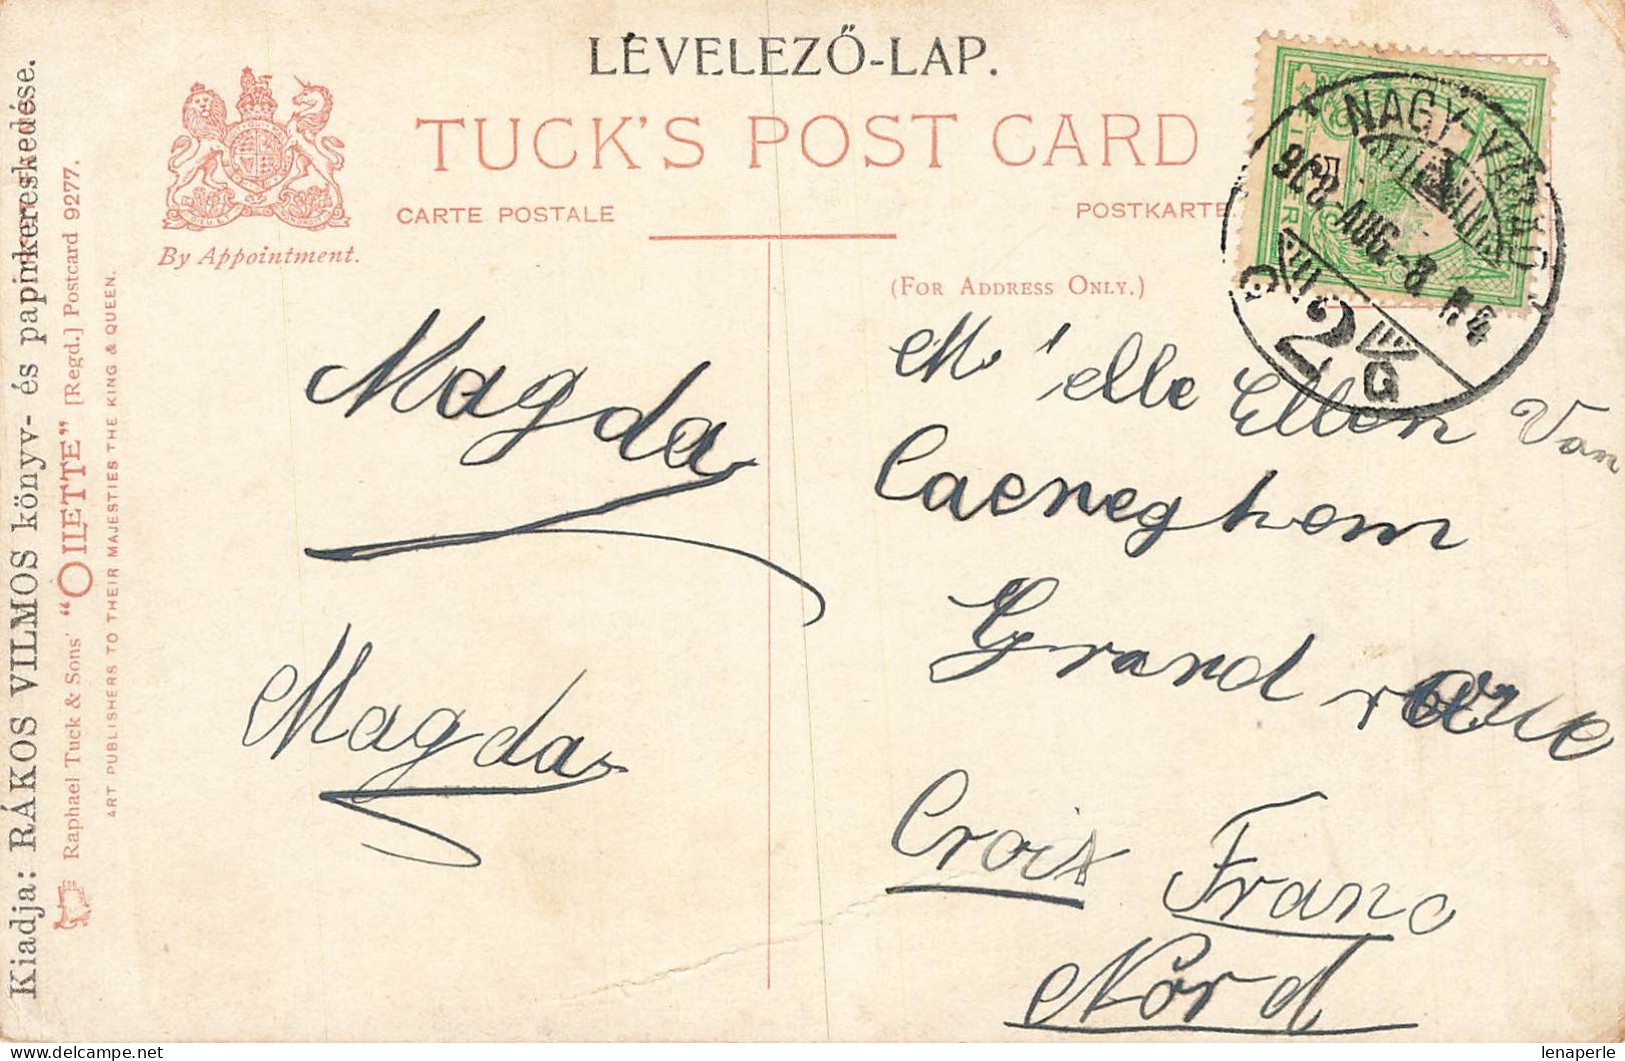 LEVELEZŐ-LAP.
TUCK'S POST CARD
CARTE POSTALE
POSTKARTE
By Appointment.
(FOR ADDRESS ONLY.)
NAGY-VÁRAD
908 AUG. -8 N4
2
Magda
Magda
M'elle Ellen Van
Caeneghem
Grand rue
Croix
Franc
Nord
Kiadja: RÁKOS VILMOS könyv- és papirkereskedése.
Raphael Tuck & Sons' "OILETTE" [Regd.] Postcard 9277.
ART PUBLISHERS TO THEIR MAJESTIES THE KING & QUEEN.
lenaperle